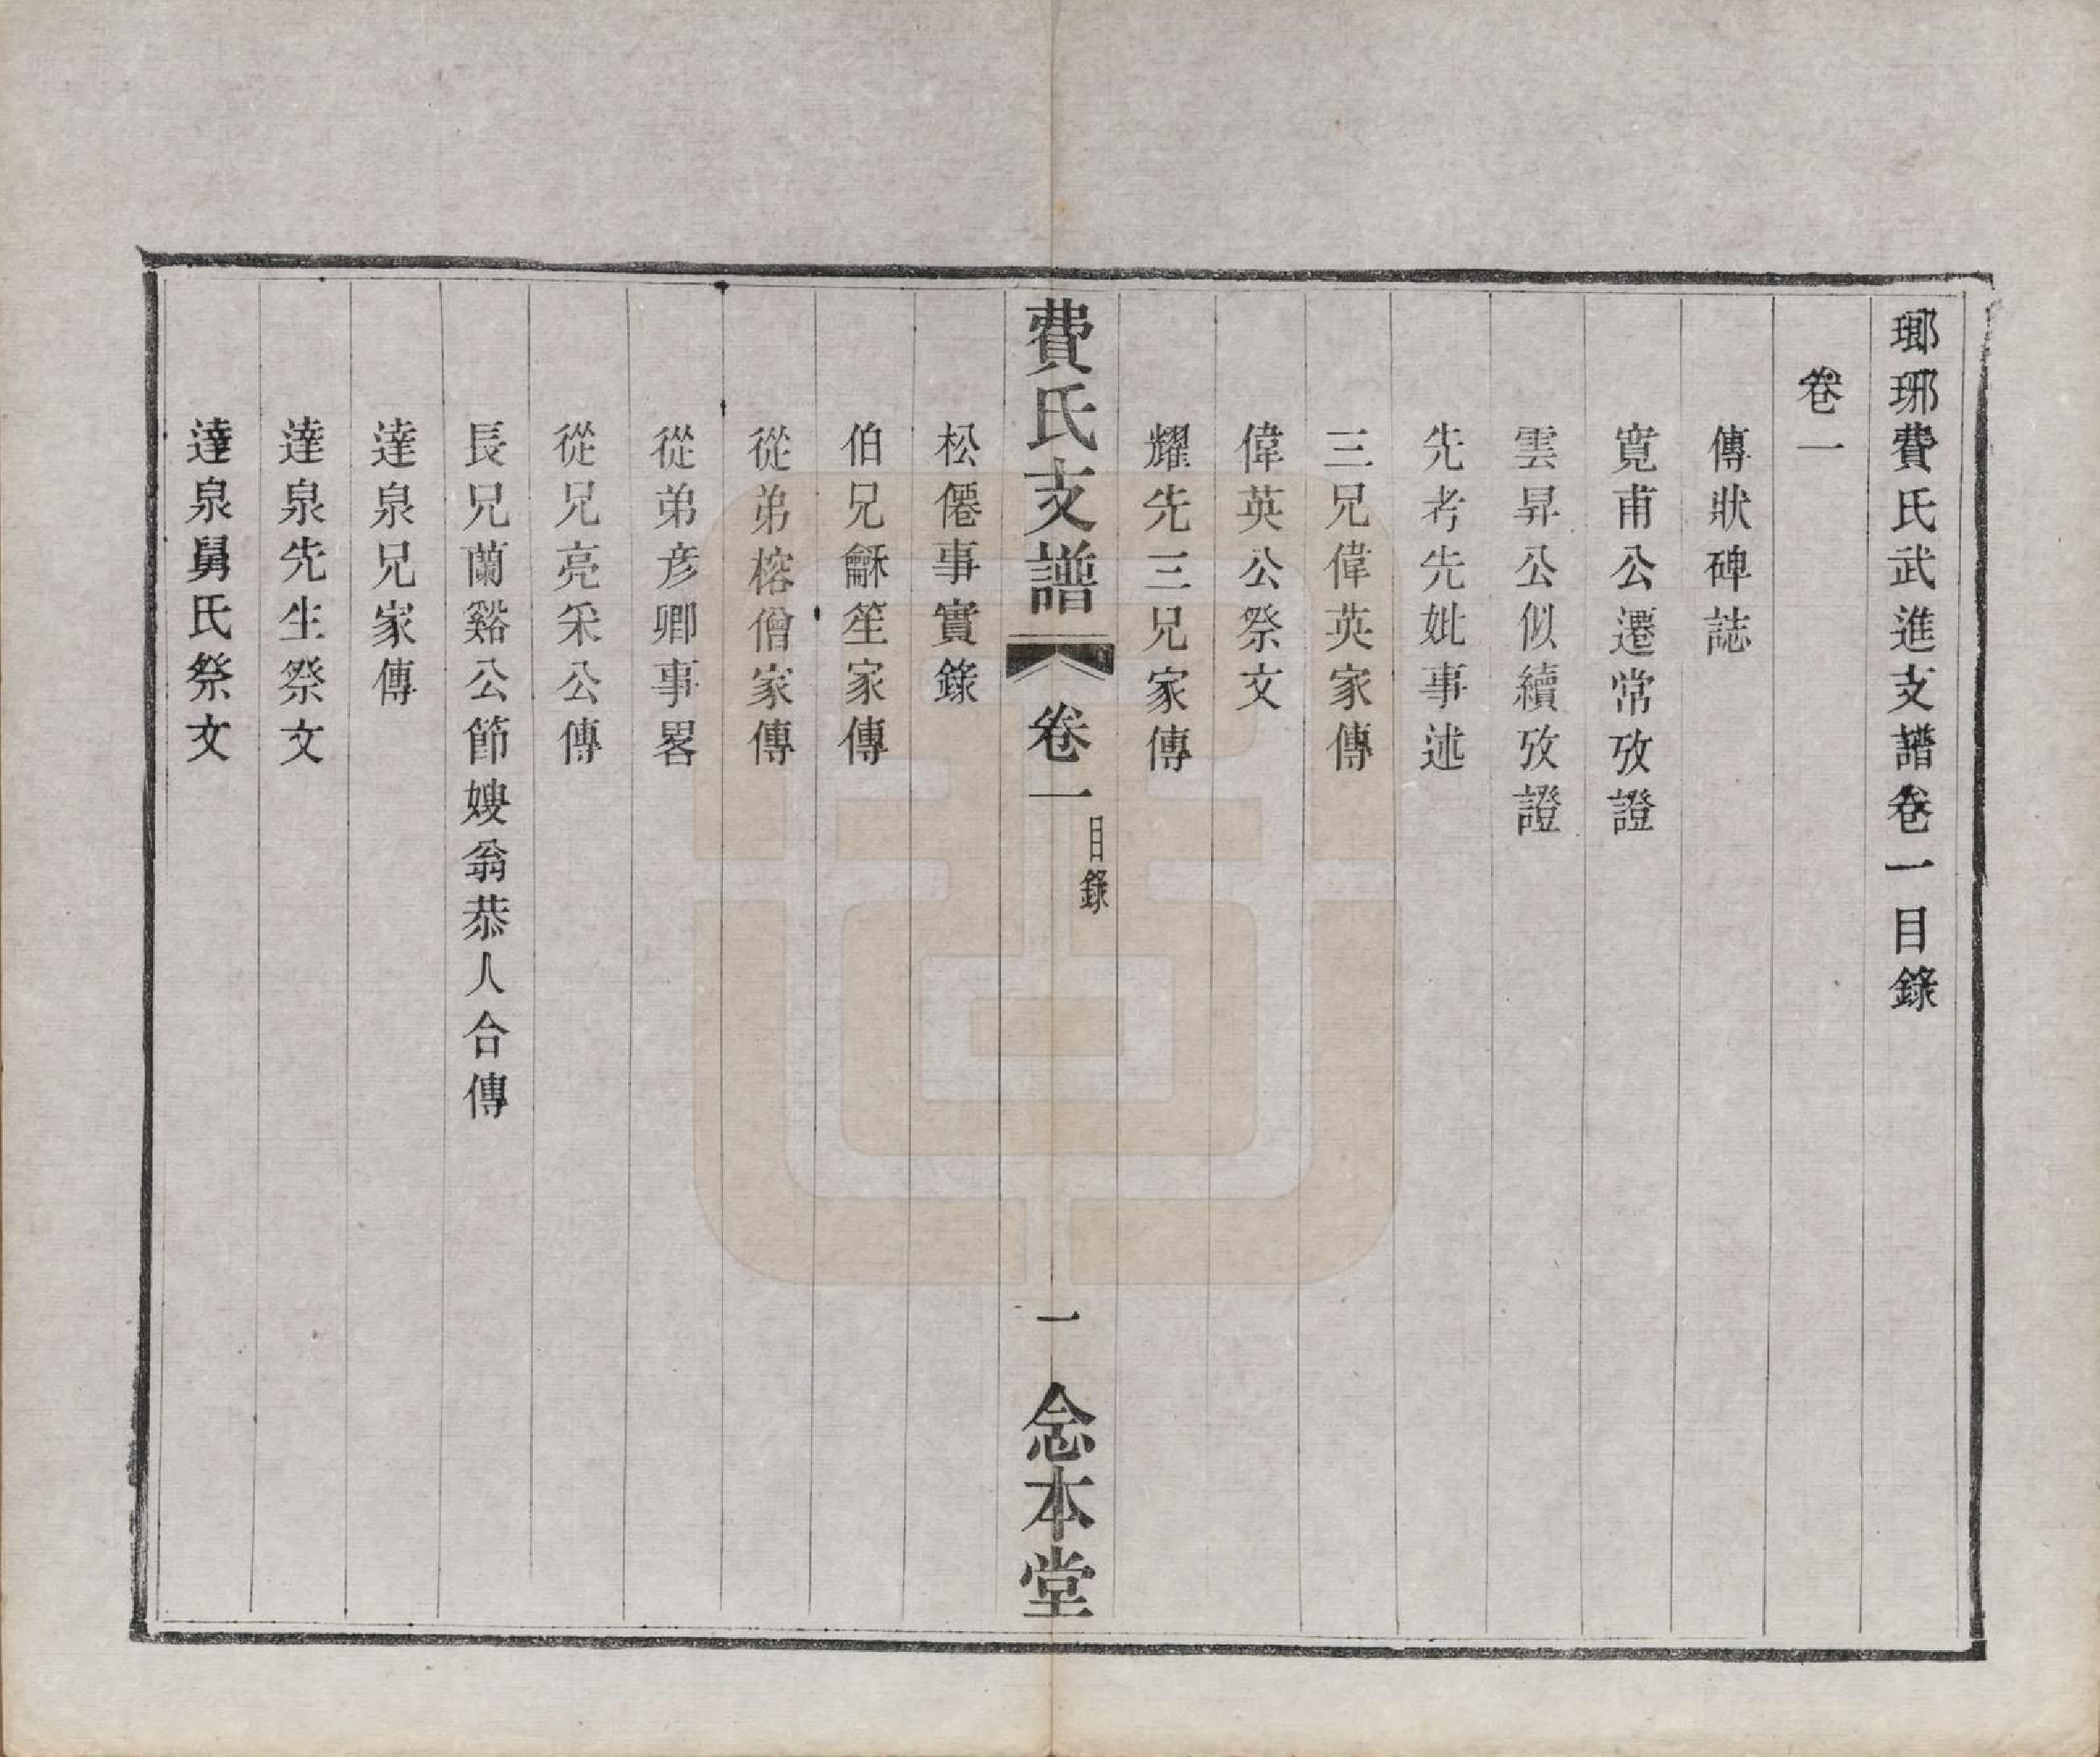 瑯琊費氏武進支譜卷一目錄
卷一
傳狀碑誌
寬甫公遷常攷證
雲昇公似續攷證
先考先妣事述
三兄偉英家傳
偉英公祭文
耀先三兄家傳
費氏支譜
卷一
目錄
一
念本堂
松僊事實錄
伯兄龢笙家傳
從弟榕僧家傳
從弟彥卿事畧
從兄亮采公傳
長兄蘭谿公節嫂翁恭人合傳
達泉兄家傳
達泉先生祭文
達泉舅氏祭文